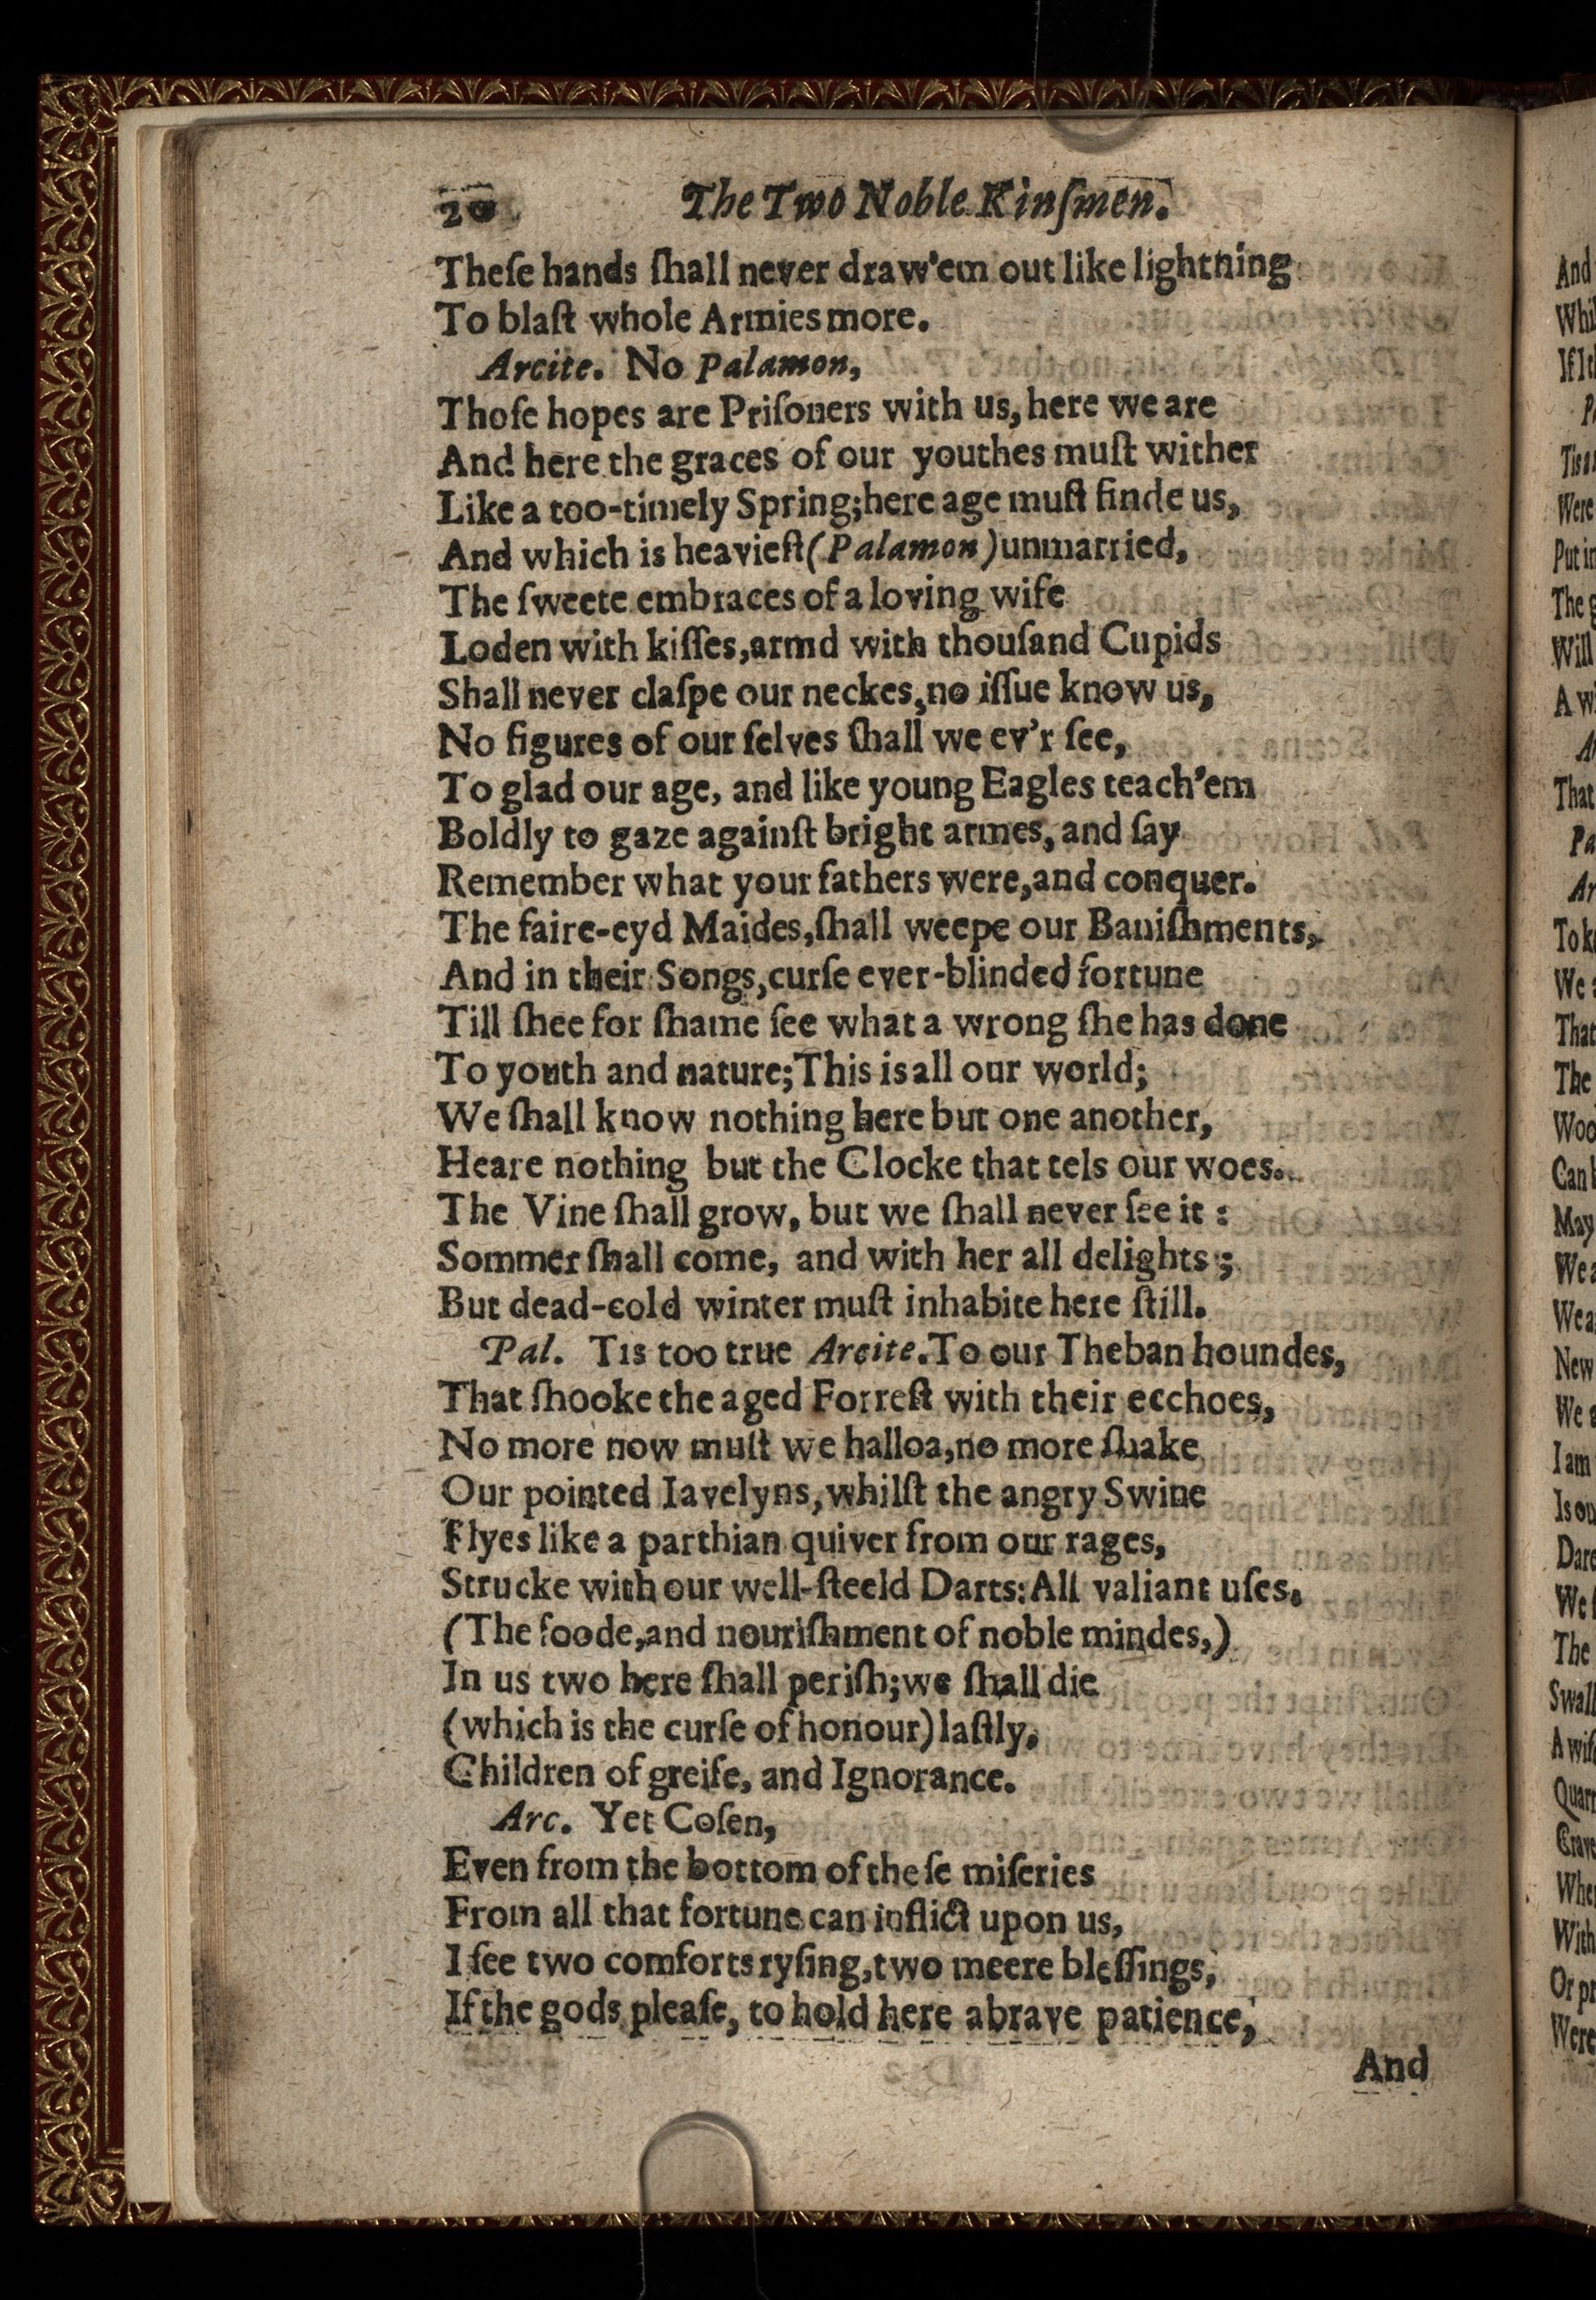 20 The Two Noble Kinſmen.
Theſe hands ſhall never draw'em out like lightning
To blaſt whole Armies more.
Arcite. No Palamon,
Thoſe hopes are Priſoners with us, here we are
And here the graces of our youthes muſt wither
Like a too-timely Spring;here age muſt finde us,
And which is heavieſt(Palamon)unmarried,
The ſweete embraces of a loving wife
Loden with kiſſes,armd with thouſand Cupids
Shall never claſpe our neckes,no iſſue know us,
No figures of our ſelves ſhall we ev'r ſee,
To glad our age, and like young Eagles teach'em
Boldly to gaze againſt bright armes, and ſay
Remember what your fathers were,and conquer.
The faire-eyd Maides,ſhall weepe our Baniſhments,
And in their Songs,curſe ever-blinded fortune
Till ſhee for ſhame ſee what a wrong ſhe has done
To youth and nature;This is all our world;
We ſhall know nothing here but one another,
Heare nothing but the Clocke that tels our woes.
The Vine ſhall grow, but we ſhall never ſee it :
Sommer ſhall come, and with her all delights ;
But dead-cold winter muſt inhabite here ſtill.
Pal. Tis too true Arcite.To our Theban houndes,
That ſhooke the aged Forreſt with their ecchoes,
No more now muſt we halloa,no more ſhake
Our pointed Iavelyns,whilſt the angry Swine
Flyes like a parthian quiver from our rages,
Strucke with our well-ſteeld Darts:All valiant uſes,
(The foode,and nouriſhment of noble mindes,)
In us two here ſhall periſh;we ſhall die
(which is the curſe of honour)laſtly,
Children of greife, and Ignorance.
Arc. Yet Coſen,
Even from the bottom of theſe miſeries
From all that fortune can inflict upon us,
I ſee two comforts ryſing,two meere bleſſings,
If the gods pleaſe, to hold here a brave patience,
And